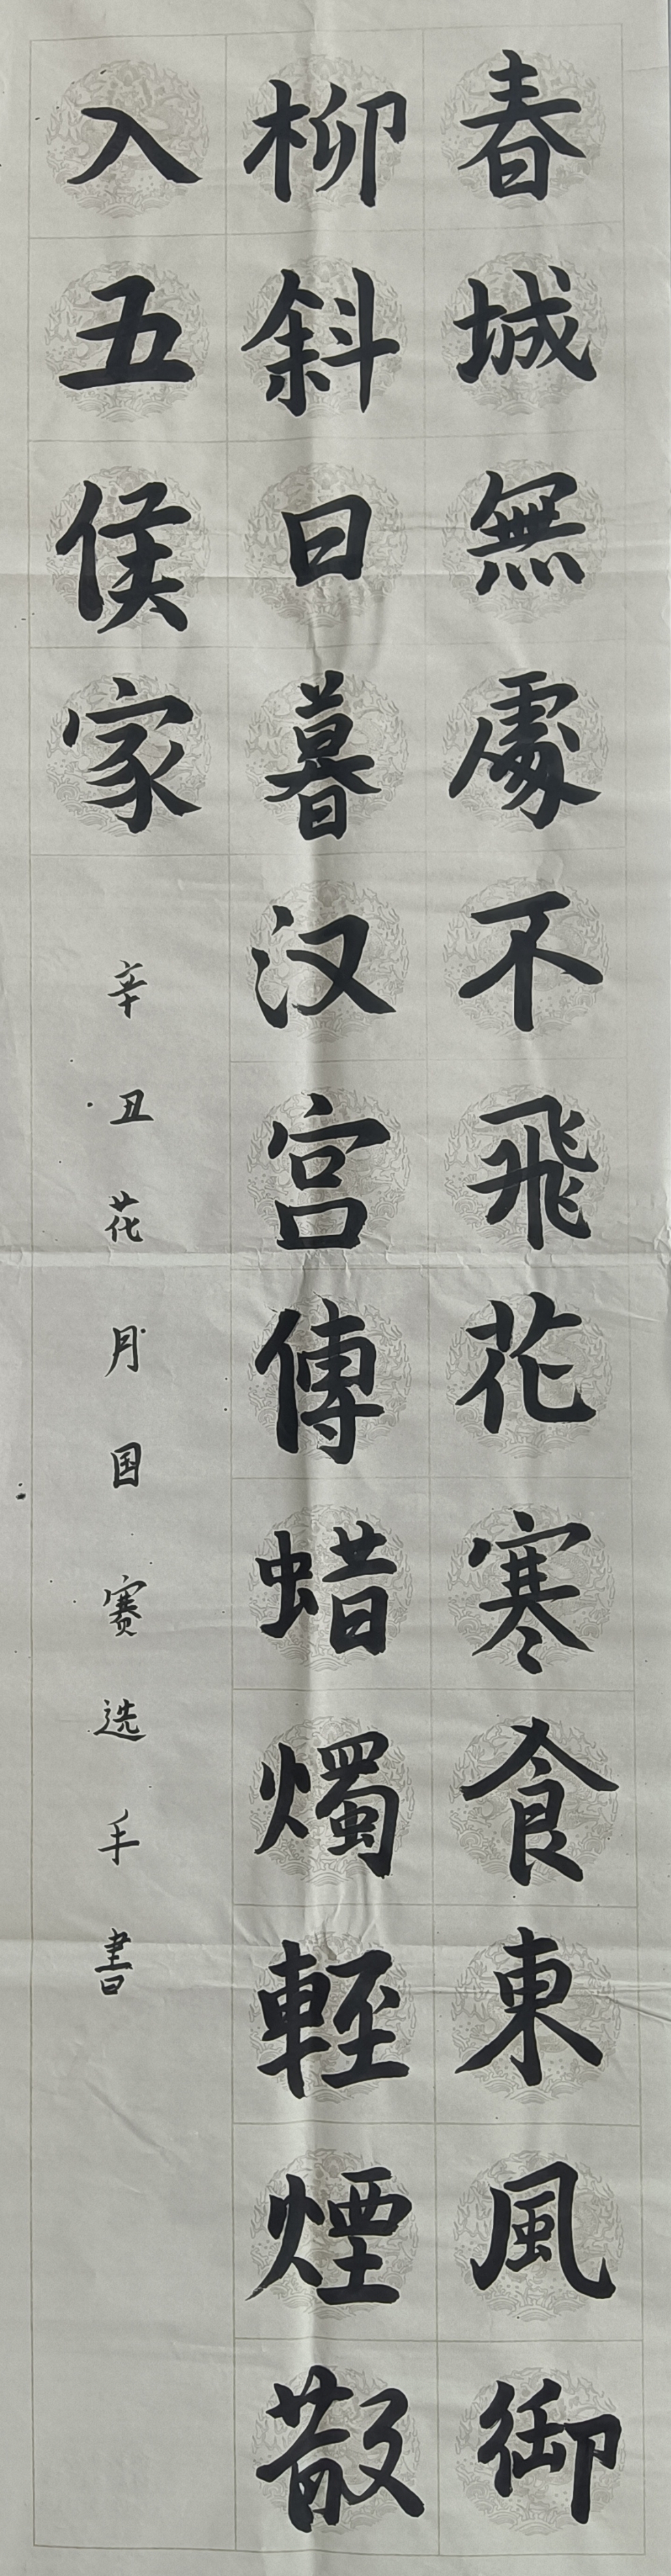 春城無處不飛花寒食東風御
柳斜日暮汉宫傳蜡燭輕煙散
入五侯家
辛丑花月国赛选手書